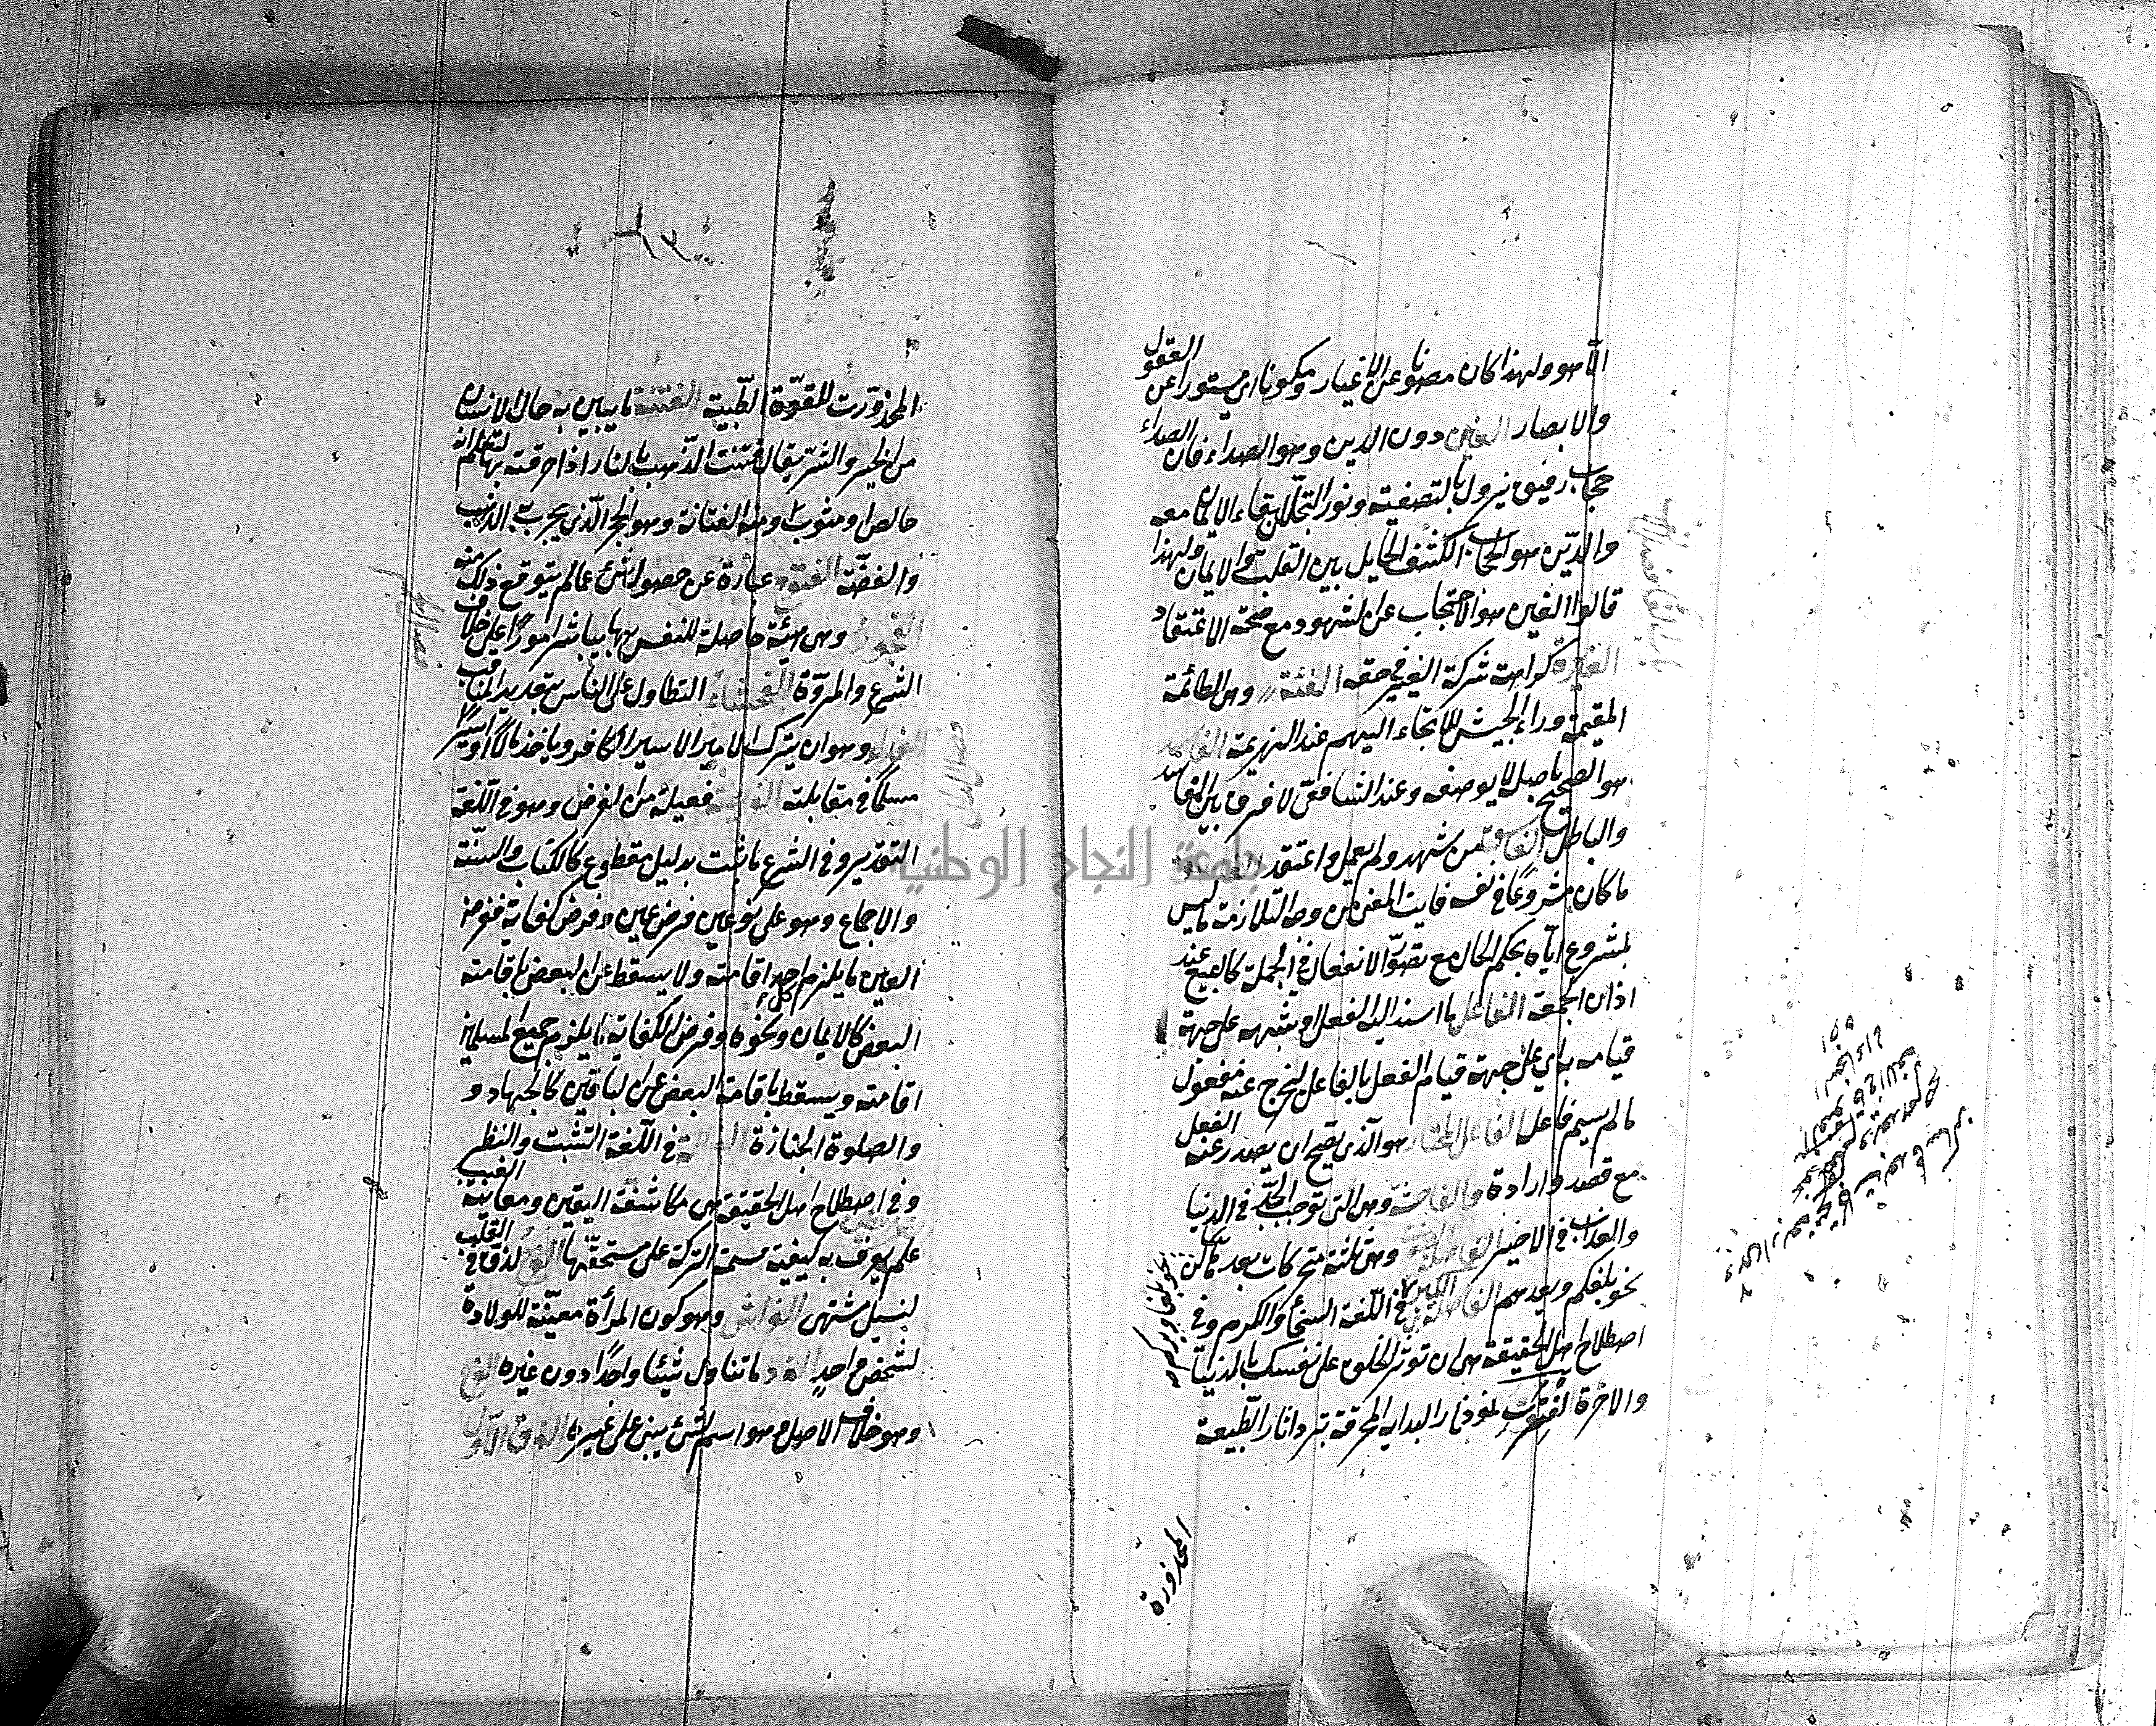 الا هو ولهذا كان مصونا عن الاغيار ومكنونا اي مستورا عن العقول
والابصار الغين دون الدين وهو الصداء فان الصداء
حجاب رفيق يزول بالتصفية ونور التجلى لبقاء الايمان معه
والدين هو الحجاب الكثيف الحايل بين القلب والايمان ولهذا
قالوا الغين هو الاحتجاب عن الشهود مع صحة الاعتقاد
الغيرة كراهة شركة الغير في حقه الفئة وهي الطائفة
المقيمة وراء الجيش للالتجاء اليهم عند الهزيمة الفاسد
هو الصحيح باصله لا بوصفه وعند الشافعى لا فرق بين الفاسد
والباطل الفاسق من شهد ولم يعمل واعتقد
ما كان مشروعا في نفسه فايت المعنى من وجه لملازمة ما ليس
بمشروع اياه بحكم الحال مع تصور الانفصال في الجملة كالبيع عند
اذان الجمعة الفاعل ما اسند اليه الفعل او شبهه على جهة
قيامه به اي على جهة قيام الفعل بالفاعل ليخرج عنه مفعول
ما لم يسم فاعله الفاعل المختار هو الذي يصح ان يصدر عنه الفعل
مع قصد وارادة الفاحشة وهي التي توجب الحد في الدنيا
والعذاب في الاخرة الفاصلة الصغرى وهي ثلثة متحركات بعدها ساكن
نحو بلغكم ويعدكم الفاصلة الكبرى في اللغة السخاء والكرم وفي
اصطلاح اهل الحقيقة هي ان تؤثر الخلق على نفسك بالدنيا
والاخرة الفتور خمود نار البداية المحرقة بتردد اثار الطبيعة
المخدورة
جامعة النجاح الوطنية
المخدورت للقوة الطبية الفتنة ما يبين به حال الانسان
من الخير والشر يقال فتنت الذهب بالنار اذا حرقته بها لتعلم انه
خالص او مشوب ومنه الفتانة وهو الحجر الذي يجرب به الذهب
والفضة الفتوح عبارة عن حصول شئ عما لم يتوقع ذلك منه
الفجور وهى هيئة حاصلة للنفس بها يباشر امورا على خلاف
الشرع والمروة الفحشاء التطاول على الناس بتعديد المناقب
الفداء وهو ان يترك الامير الاسير الكافر وياخذ مالا او اسيرا
مسلما في مقابلته الفريضة فعيلة من الفرض وهو في اللغة
التقدير وفي الشرع ما ثبت بدليل مقطوع كالكتاب والسنة
والاجماع وهو على نوعين فرض عين وفرض كفاية ففرض
العين ما يلزم كل احد اقامته ولا يسقط عن البعض باقامة
البعض كالايمان ونحوه وفرض الكفاية ما يلزم جميع المسلمين
اقامته ويسقط باقامة البعض عن الباقين كالجهاد و
والصلوة الجنازة الفراسة في اللغة التثبت والنظر
وفي اصطلاح اهل الحقيقة هي مكاشفة اليقين ومعاينة الغيب
علم يعرف به كيفية قسمة التركة على مستحقها الفرح لذة في القلب
لنيل المشتهى الفراش وهو كون المرأة معينة للولادة
لشخص واحد الفرد ما تناول شيئا واحدا دون غيره الفرع
وهو خلاف الاصل وهو اسم لشئ يبنى على غيره الفرق الاول